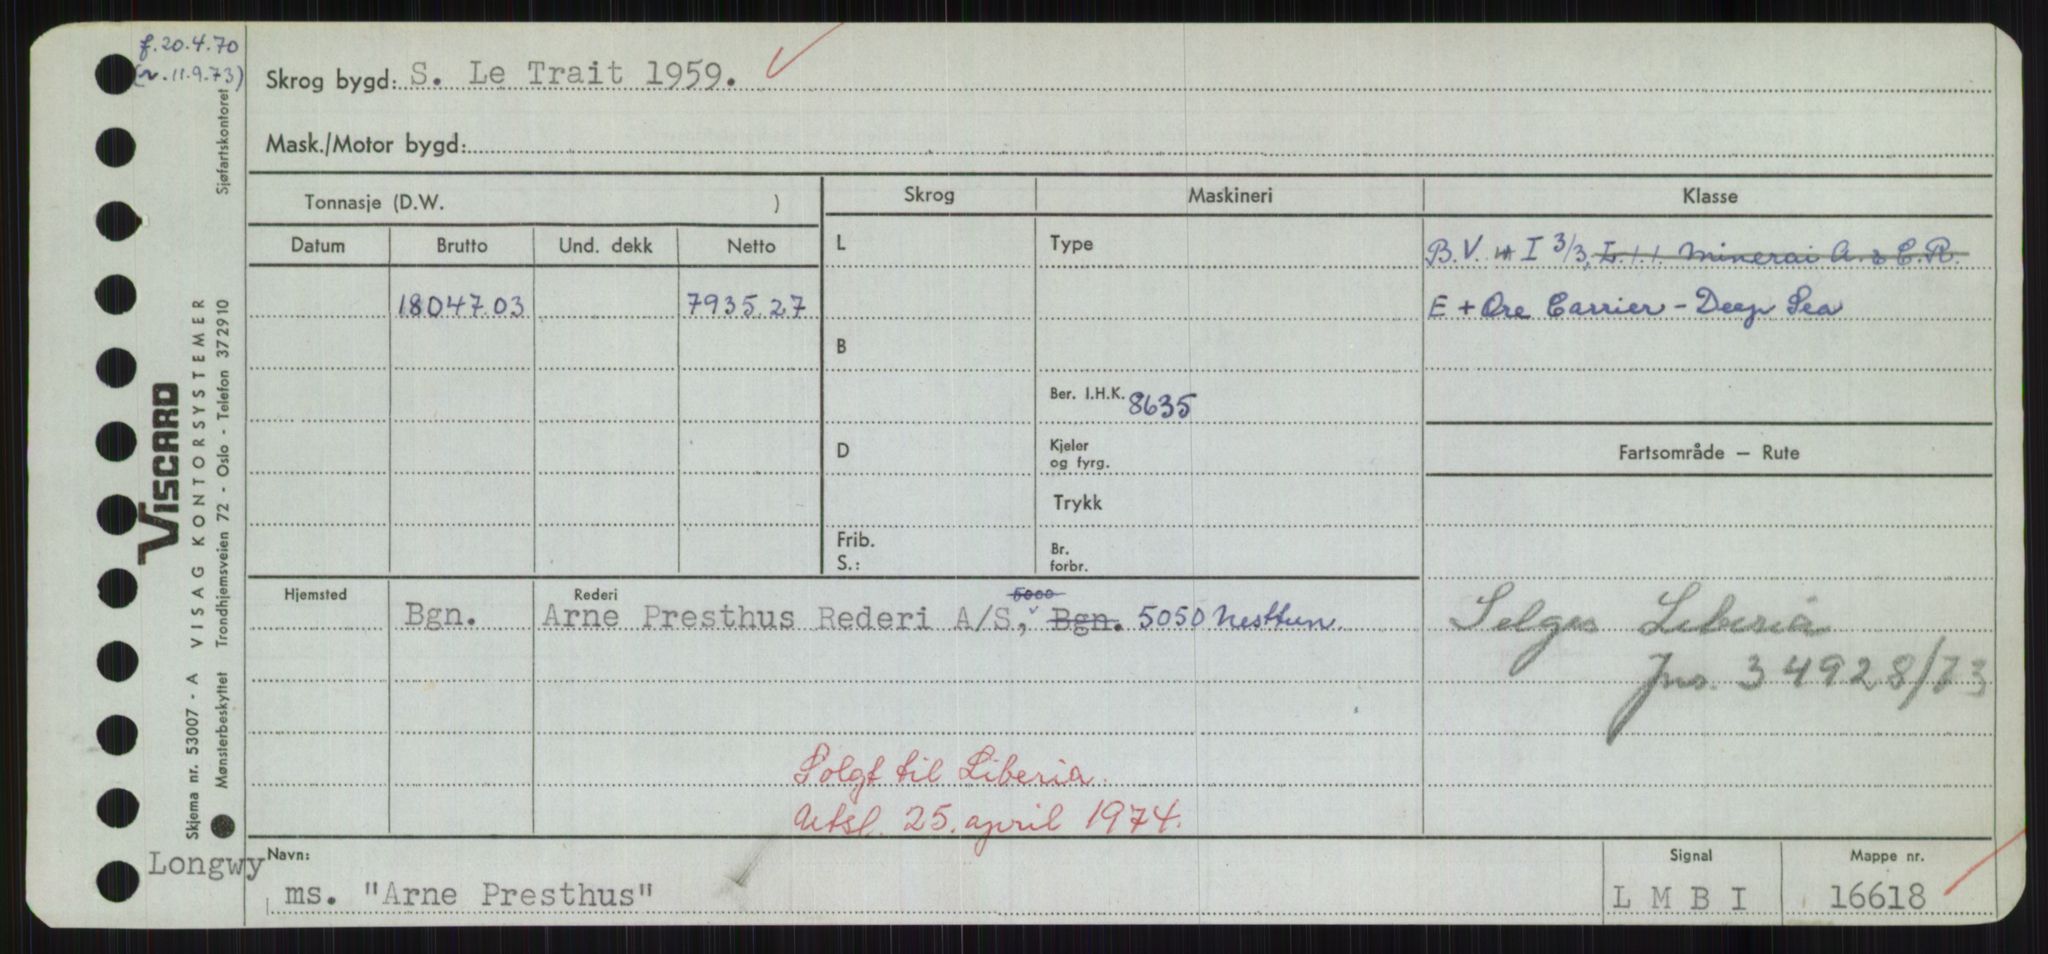 f. 20.4.70
(n. 11.9.73)
Skrog bygd: S. Le Trait 1959.
Mask./Motor bygd:
Tonnasje (D.W. )
Skrog
Maskineri
Klasse
Datum
Brutto
Und. dekk
Netto
L
Type
B.V. I 3/3, L.1.1. Minerai A. & C.R.
18047.03
7935.27
E + Ore Carrier - Deep Sea
B
Ber. I.H.K. 8635
D
Kjeler
og fyrg.
Fartsområde — Rute
Trykk
Frib.
S.:
Br.
forbr.
Hjemsted
Rederi
5000
Bgn.
Arne Presthus Rederi A/S, Bgn. 5050 Nesttun.
Selges Liberia
Jns. 34928/73
Solgt til Liberia.
Utsl. 25. april 1974.
Longwy
Navn:
ms. "Arne Presthus"
Signal
L M B I
Mappe nr.
16618
Sjøfartskontoret
VISCARD
VISAG KONTORSYSTEMER
Trondhjemsveien 72 - Oslo - Telefon 372910
Skjema nr. 53007 - A
Mønsterbeskyttet